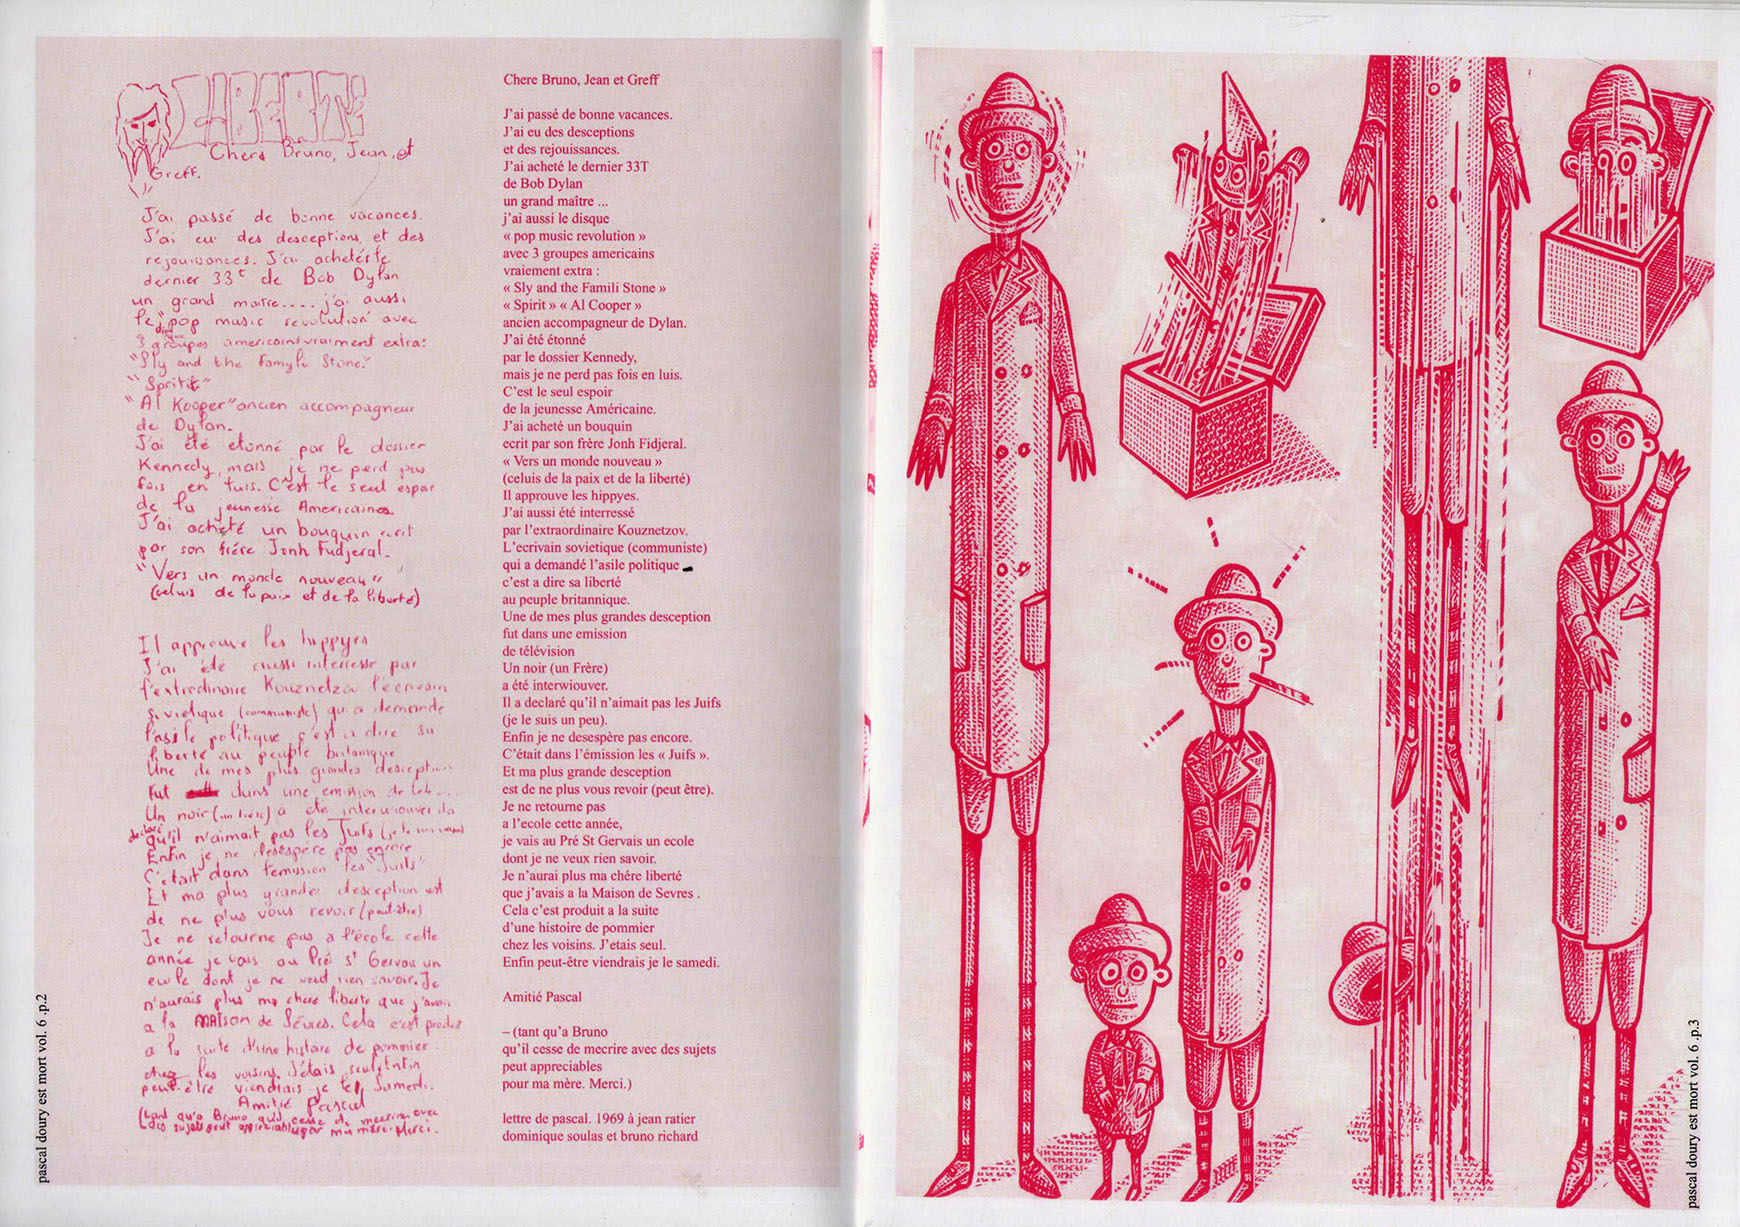 LIBERTÉ
Chers Bruno, Jean, et
Greff.
J'ai passé de bonne vacances.
J'ai eu des desceptions, et des
rejouissances. J'ai acheté le
dernier 33t de Bob Dylan
un grand maitre.... j'ai aussi
le disque "pop music revolution" avec
3 groupes americains vraiment extra:
"Sly and the Famyle Stone."
"Spritit"
"Al Kooper" ancien accompagneur
de Dylan.
J'ai été etonné par le dossier
Kennedy, mais je ne perd pas
fois en luis. C'est le seul espoir
de la jeunesse Americaines.
J'ai acheté un bouquin ecrit
par son frére Jonh Fudjeral.
"Vers un monde nouveau"
(celuis de la paix et de la liberté)
Il approuve les hippyes
J'ai été aussi interresse par
l'extrodinaire Kouznetzov l'ecrivain
sovietique (communiste) qui a demande
l'asile politique c'est a dire sa
liberte au peuple britannique
Une de mes plus grandes desception
fut dans une emission de
Un noir (un frère) a été interwiouver il a
declaré qu'il n'aimait pas les Juifs
Enfin je ne desespère pas encore
C'était dans l'emission les "Juifs"
Et ma plus grandes desception est
de ne plus vous revoir (peut-être)
Je ne retourne pas a l'école cette
année je vais au Pré St Gervais un
ecole dont je ne veut rien savoir. Je
n'aurais plus ma chere liberte que j'avais
a la MAISON de Sévres. Cela c'est produit
a la suite d'une histoire de pommier
chez les voisins. J'étais seul Enfin
peut-être viendrais je le Samedi.
Amitié Pascal
(tant qu'a Bruno qu'il cesse de mecrire avec
des sujets peut appreciables pour ma mère. Merci.
Chere Bruno, Jean et Greff
J'ai passé de bonne vacances.
J'ai eu des desceptions
et des rejouissances.
J'ai acheté le dernier 33T
de Bob Dylan
un grand maître ...
j'ai aussi le disque
« pop music revolution »
avec 3 groupes americains
vraiement extra :
« Sly and the Famili Stone »
« Spirit » « Al Cooper »
ancien accompagneur de Dylan.
J'ai été étonné
par le dossier Kennedy,
mais je ne perd pas fois en luis.
C'est le seul espoir
de la jeunesse Américaine.
J'ai acheté un bouquin
ecrit par son frère Jonh Fidjeral.
« Vers un monde nouveau »
(celuis de la paix et de la liberté)
Il approuve les hippyes.
J'ai aussi été interressé
par l'extraordinaire Kouznetzov.
L'ecrivain sovietique (communiste)
qui a demandé l'asile politique
c'est a dire sa liberté
au peuple britannique.
Une de mes plus grandes desception
fut dans une emission
de télévision
Un noir (un Frère)
a été interwiouver.
Il a declaré qu'il n'aimait pas les Juifs
(je le suis un peu).
Enfin je ne desespère pas encore.
C'était dans l'émission les « Juifs ».
Et ma plus grande desception
est de ne plus vous revoir (peut être).
Je ne retourne pas
a l'ecole cette année,
je vais au Pré St Gervais un ecole
dont je ne veux rien savoir.
Je n'aurai plus ma chére liberté
que j'avais a la Maison de Sevres .
Cela c'est produit a la suite
d'une histoire de pommier
chez les voisins. J'etais seul.
Enfin peut-être viendrais je le samedi.
Amitié Pascal
– (tant qu'a Bruno
qu'il cesse de mecrire avec des sujets
peut appreciables
pour ma mère. Merci.)
lettre de pascal. 1969 à jean ratier
dominique soulas et bruno richard
pascal doury est mort vol. 6 .p.2
pascal doury est mort vol. 6 .p.3